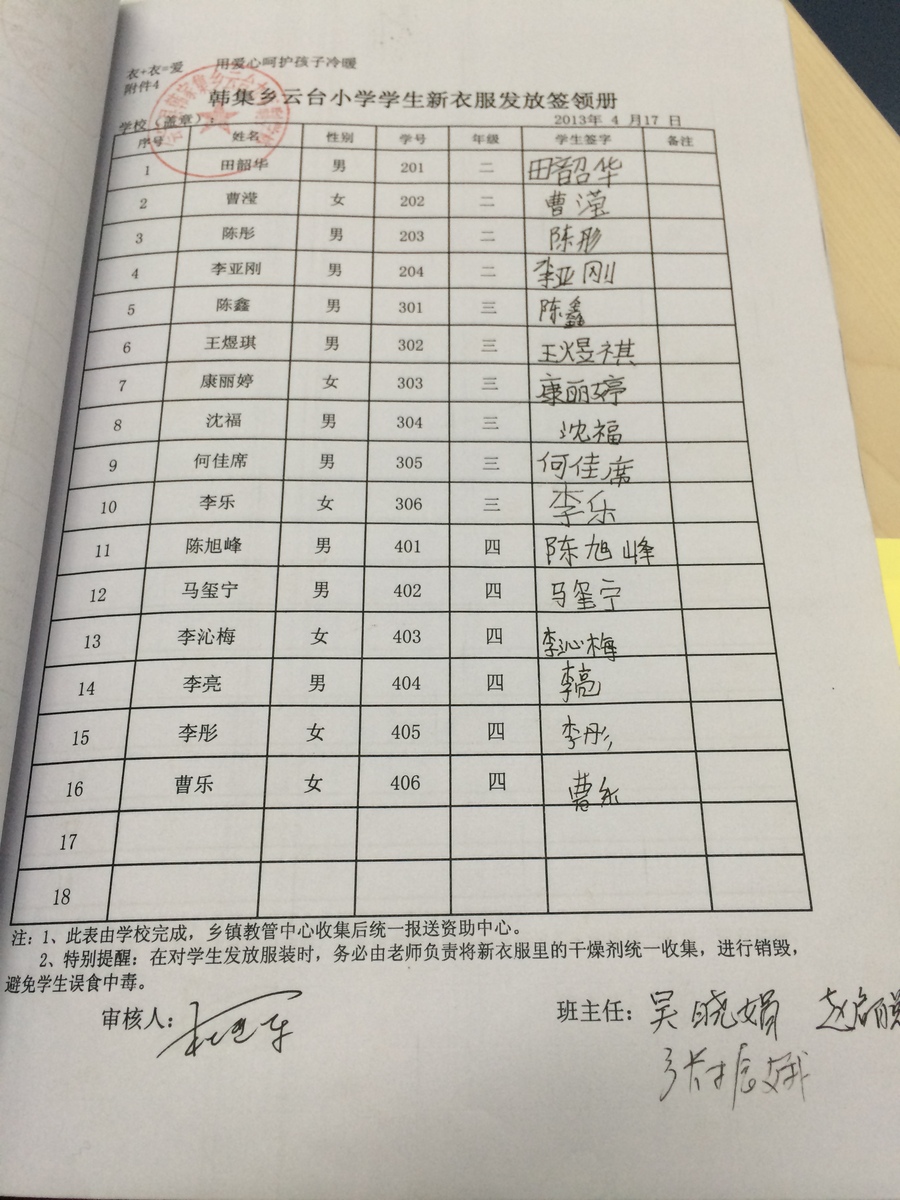 衣+衣=爱 用爱心呵护孩子冷暖
附件4
韩集乡云台小学学生新衣服发放签领册
学校（盖章）： 2013年 4 月17 日
序号 姓名 性别 学号 年级 学生签字 备注
1 田韶华 男 201 二 田韶华
2 曹滢 女 202 二 曹滢
3 陈彤 男 203 二 陈彤
4 李亚刚 男 204 二 李亚刚
5 陈鑫 男 301 三 陈鑫
6 王煜琪 男 302 三 王煜祺
7 康丽婷 女 303 三 康丽婷
8 沈福 男 304 三 沈福
9 何佳席 男 305 三 何佳席
10 李乐 女 306 三 李乐
11 陈旭峰 男 401 四 陈旭峰
12 马玺宁 男 402 四 马玺宁
13 李沁梅 女 403 四 李沁梅
14 李亮 男 404 四 李亮
15 李彤 女 405 四 李彤
16 曹乐 女 406 四 曹乐
17
18
注：1、此表由学校完成，乡镇教管中心收集后统一报送资助中心。
2、特别提醒：在对学生发放服装时，务必由老师负责将新衣服里的干燥剂统一收集，进行销毁，
避免学生误食中毒。
审核人： 班主任：吴晓娟